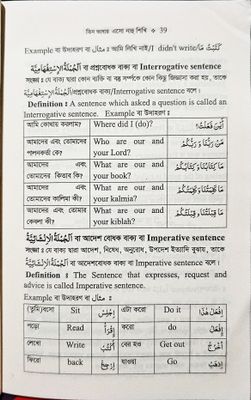 তিন ভাষায় এসো নাহু শিখি ❖ 39
Example বা উদাহরণ বা مثال : আমি লিখি নাই/I didn't write/مَا كَتَبْتُ
اَلْجُمْلَةُ الْاِسْتِفْهَامِيَّةُ বা প্রশ্নবোধক বাক্য/Interrogative sentence
সংজ্ঞা : যে বাক্য দ্বারা কোন ব্যক্তি বা বস্তু সম্পর্কে কোন কিছু জিজ্ঞাসা করা হয়, তাকে
اَلْجُمْلَةُ الْاِسْتِفْهَامِيَّةُ/প্রশ্নবোধক বাক্য/Interrogative sentence বলে।
Definition : A sentence which asked a question is called an
Interrogative sentence. Example বা উদাহরণ :
আমি কোথায় করলাম? Where did I (do)? أَيْنَ فَعَلْتُ؟
আমাদের এবং তোমাদের পালনকর্তা কে? Who are our and your Lord? مَنْ رَبُّنَا وَرَبُّكُمْ
আমাদের এবং তোমাদের কিতাব কি? What are our and your book? مَا كِتَابُنَا وَكِتَابُكُمْ
আমাদের এবং তোমাদের কালিমা কী? What are our and your kalmia? مَا كَلِمَتُنَا وَكَلِمَتُكُمْ
আমাদের এবং তোমার কেবলা কী? What are our and your kiblah? مَا قِبْلَتُنَا وَقِبْلَتُكُمْ
اَلْجُمْلَةُ الْاِنْشَائِيَّةُ বা আদেশ বোধক বাক্য বা Imperative sentence
সংজ্ঞা : যে বাক্য দ্বারা আদেশ, নিষেধ, অনুরোধ, উপদেশ ইত্যাদি বুঝায়, তাকে
اَلْجُمْلَةُ الْاِنْشَائِيَّةُ বা আদেশবোধক বাক্য বা Imperative sentence বলে।
Definition : The Sentence that expresses, request and
advice is called Imperative sentence.
Example বা উদাহরণ বা مثال :
(তুমি)বসো Sit اِجْلِسْ এটা করো Do it اِفْعَلْ هٰذَا
পড়ো Read اِقْرَأْ করো do اِفْعَلْ
লেখো Write اُكْتُبْ বের হও Get out اُخْرُجْ
ফিরো back اِرْجِعْ যাওয়া Go اِذْهَبْ